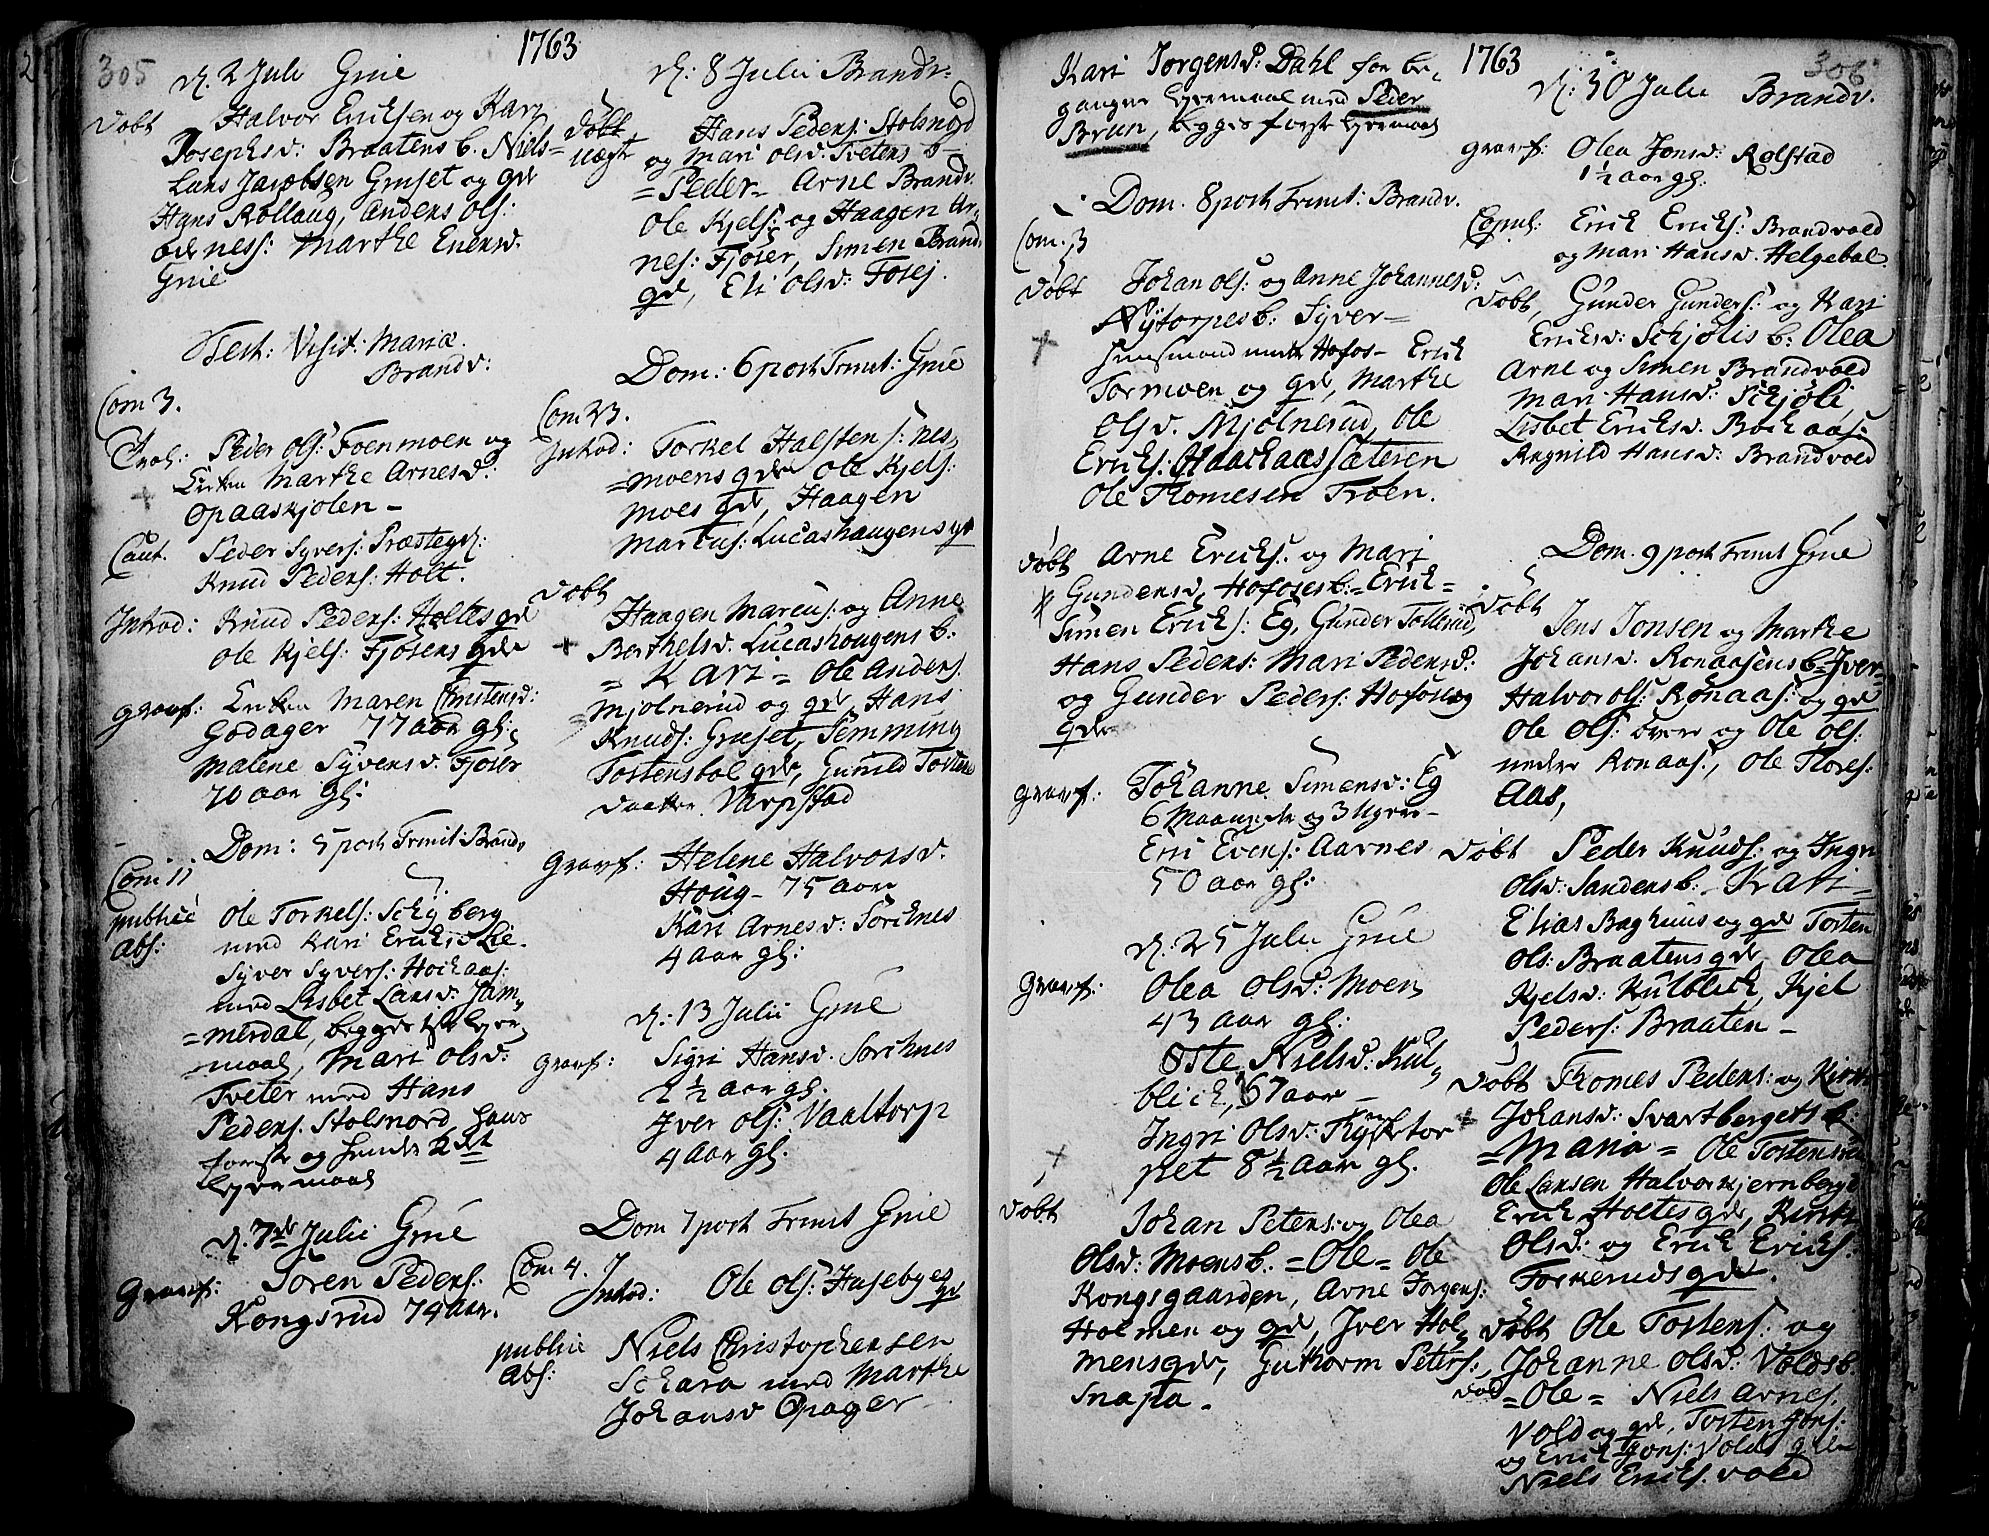 305
1763
d. 2 Juli Grue
døbt Halvor Erichsen og Kari
Josephsd: Braatens b. Niels=
Lars Jacobsen Gruset og gde
Hans Rollaug, Anders ols:
Marthe Evensd.
Grue
Fest: Visit: Mariæ
Brandv:
Com 3.
Trol: Peder ols: Foenmoen og
Enken Marthe Arnesd:
Opaaskjolen –
Caut. Peder Syvers: Præstegd:
Knud Peders: Holt.
Introd: Knud Peders: Holtes gde
Ole Kjels: Fjosers gde
Gravf: Enken Maren Christensd:
Godager 77 aar gl:
Malene Syversd. Fjoser
70 aar gl:
Dom: 5 post Trinit: Brandv
Com 11
publicè abs:
Ole Torkels: Schyberg
med Kari Ericksd Lie.
Syver Syvers: Hochaas:
med Lisbet Larsd: Jam„
=merdal, begges 1ste Leyer„
maal, Mari olsd:
Tveter med Hans
Peders. Stolsnord hans
første og hendes 2det
Leyermaal
d. 7de Julii Grue
Gravf: Soren Peders:
Kongsrud 74 aar.
d: 8 Julii Brandv:
døbt uægte
Hans Peders: Stolsnord
og Mari olsd. Tvetens b=
=Peder= Arne Brandv.
Ole Kjels: og Haagen Ar„
nes: Fjoser, Simen Brandv
gde, Eli olsd: Fosej.
Dom: 6 post Trinit: Grue
Com 23.
Introd: Torkel Halstens: nes„
=moens gde Ole Kjels:
moes gde, Haagen
Marcus: Lucashaugens gde
døbt
Haagen Marcus: og Anne
Berthelsd. Lucashougens b:
= Kari = Ole Anders.
Mjolnerud og gde Hans
Knuds: Gruset, Femming
Tostensbol gde, Gunild Tosten
daatter Varpstad
Gravf: Helene Halvorsd.
Houg – 75 aar
Kari Arnesd: Sorchnes
4 aar gl:
d: 13 Julii Grue
Gravf: Sigri Hansd. Sorchnes
2 ½ aar gl.
Iver ols: Vaaltorp
4 aar gl.
Dom 7 post Trinit Grue
Com 4.
Introd: Ole ols: Husebyes gde
publice abs:
Niels Christophersen
Schara med Marthe
Johansd Opager
Kari Jorgensd: Dahl for be„
gangen Leyermaal med Peder
Brun, begges første Leyermaal
1763
306
Dom. 8 post Trinit: Brandv.
Com. 3
døbt Johan ols: og Anne Johannesd:
Nytorpes b: Syver=
Hofos – Erich
Tormoen og gde, Marthe
olsd. Mjolnerud, Ole
Erichs: Haachaassæteren
Ole Thomesen Troen.
døbt Arne Erichs: og Mari
Gundersd, Hofoses b:=Erich=
Simen Erichs: Eg, Gunder Tollerud,
Hans Peders: Mari Pedersd:
og Gunder Peders: Hofos og
gde
Gravf: Johanne Simensd: Eg
6 Maaneder og 3 Uger –
Eric Evens: Aarnes
50 aar gl:
d. 25 Julii Grue
Gravf: Olea olsd: Moen,
43 aar gl:
Oste Nielsd: Kul„
blich, 67 aar –
Ingri olsd:
pet 8 ½ aar gl.
døbt
Johan Peters: og Olea
olsd: Moens b. =Ole= Ole
Kongsgaarden, Arne Jorgens:
Holmen og gde, Iver Hol„
mens gde, Guthorm Peters:
Snapa.
d: 30 Julii Brandv.
gravf: Olea Jonsd: Rolstad
1 ½ aar gl.
Copul: Erich Erichs: Brandvoed
og Mari Hansd. Helgebol.
døbt, Gunder Gunders: og Kari
Ericksd: Schjolis b: Olea
Arne og Simen Brandvoed
Mari Hansd. Schjoli,
Lisbet Ericksd. Bochaas:
Ragnild Hansd: Brandvoed
Dom. 9 post Trinit Grue
døbt
Jens Jonsen og Marthe
Johansd. Ronaasens b=Iver=
Halvor ols: Ronaas: og gde
Ole ols: øvre og Ole ols:
nedre Ronaas:, Ole Thores:
Aas,
døbt Peder Knuds: og Ingri
olsd: Sandens b. =Kari=
Elias Baghuus og gde Tosten
ols: Braatens gde, Olea
Kjelsd: Kulblich, Kjel
Peders: Braaten –
døbt Thomes Peders: og Kirsti
Johansd: Svartbergets b.
=Maria= Ole Tostensrud
Ole Larsen Halvorkjernberget
Erich Holtes gde, Kirsti
olsd: og Erich Erichs:
Torkeruds gde.
døbt Ole Tostens: og
Johanne olsd: Volds b.
=Ole= Niels Arnes.
Vold og gde, Tosten Jons:
og Erich Jons: Volds gde
Niels Erichs. vold